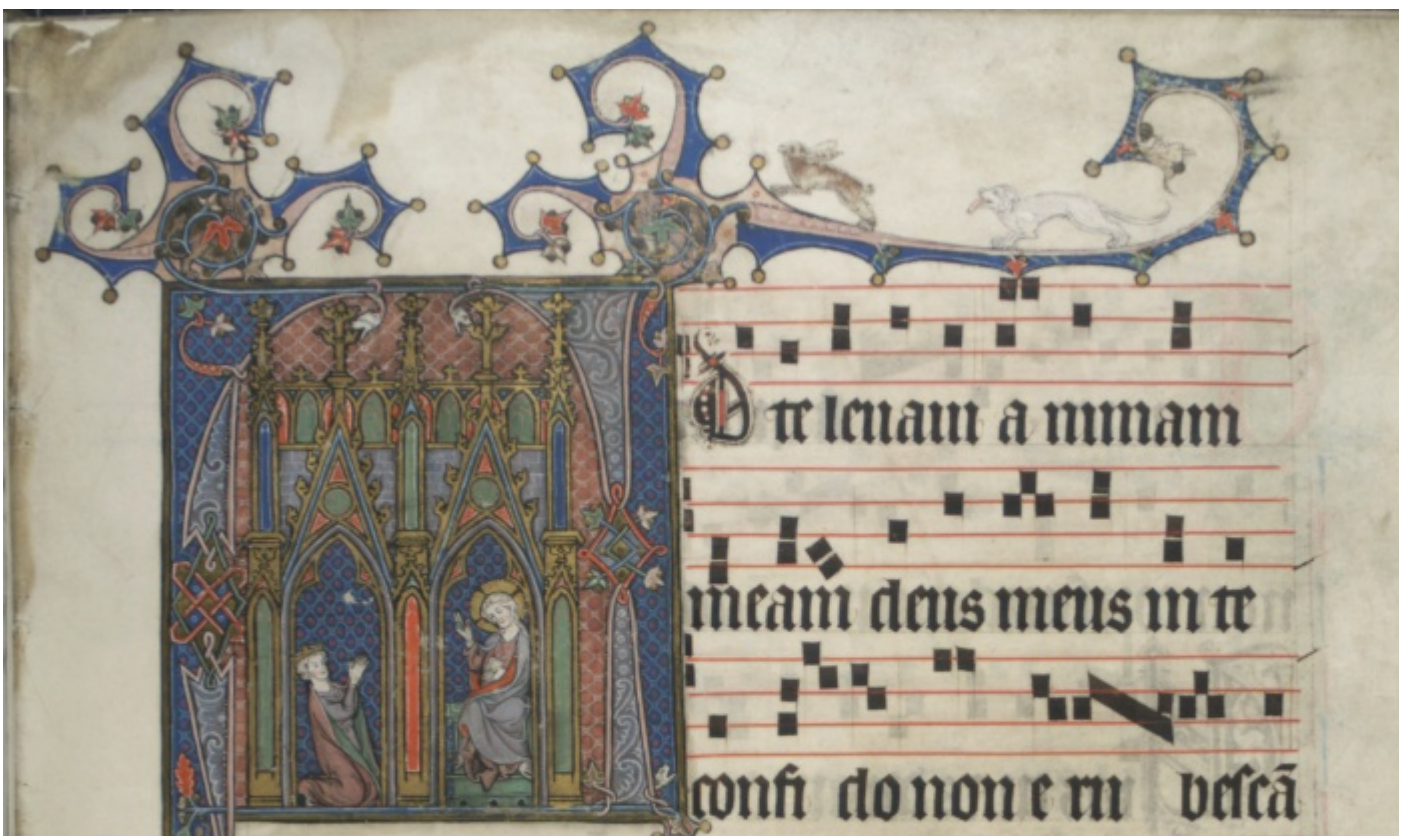 AD te leuaui a nimam
meam deus meus in te
confi do non e ru beſcā